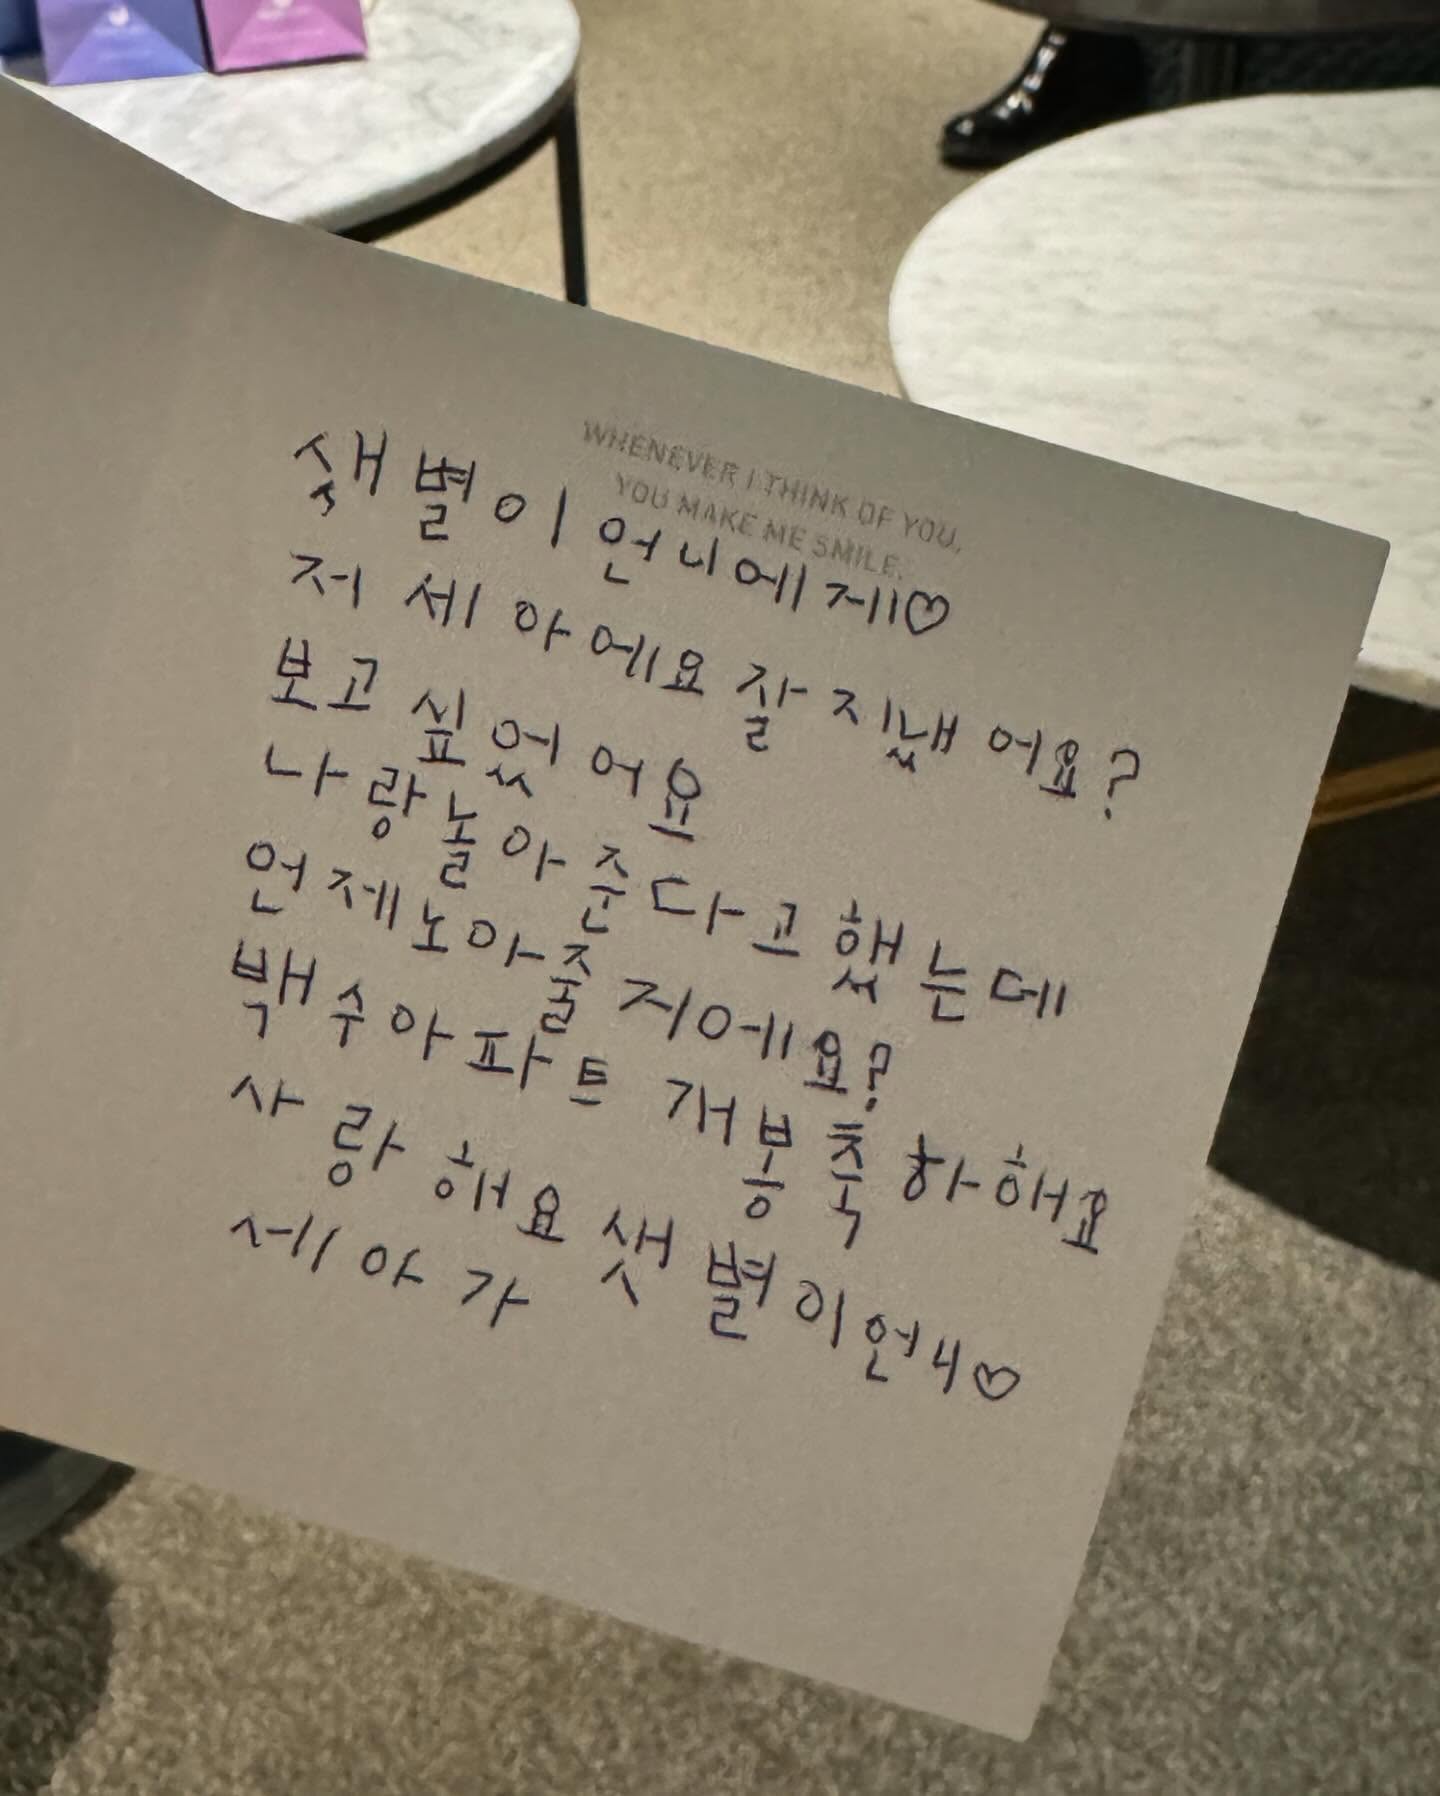 WHENEVER I THINK OF YOU,
YOU MAKE ME SMILE.
샛별이 언니에게♡
저 세아에요 잘 지냈어요?
보고 싶었어요
나랑놀아준다고 했는데
언제노아줄 거에요?
백수아파트 개봉축하해요
사랑해요 샛별이언니♡
세아가